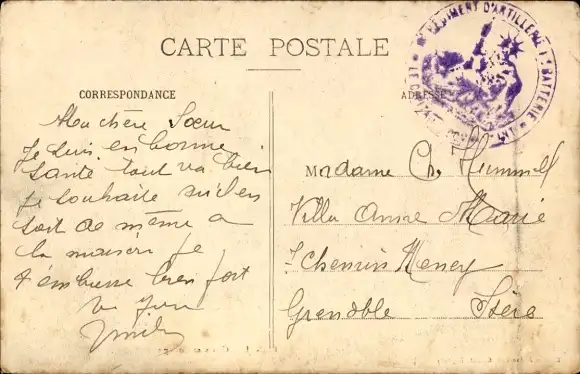 CARTE POSTALE
CORRESPONDANCE
ADRESSE
RÉGIMENT D'ARTILLERIE 1e BATTERIE
LE
Ma chère Sœur
Je suis en bonne
santé tout va bien
je souhaite qu'il en
soit de même a
la maison je
t'embrasse bien fort
Madame Ch. Hummel
Villa Anne Marie
Chemin Meney
Grenoble Isère